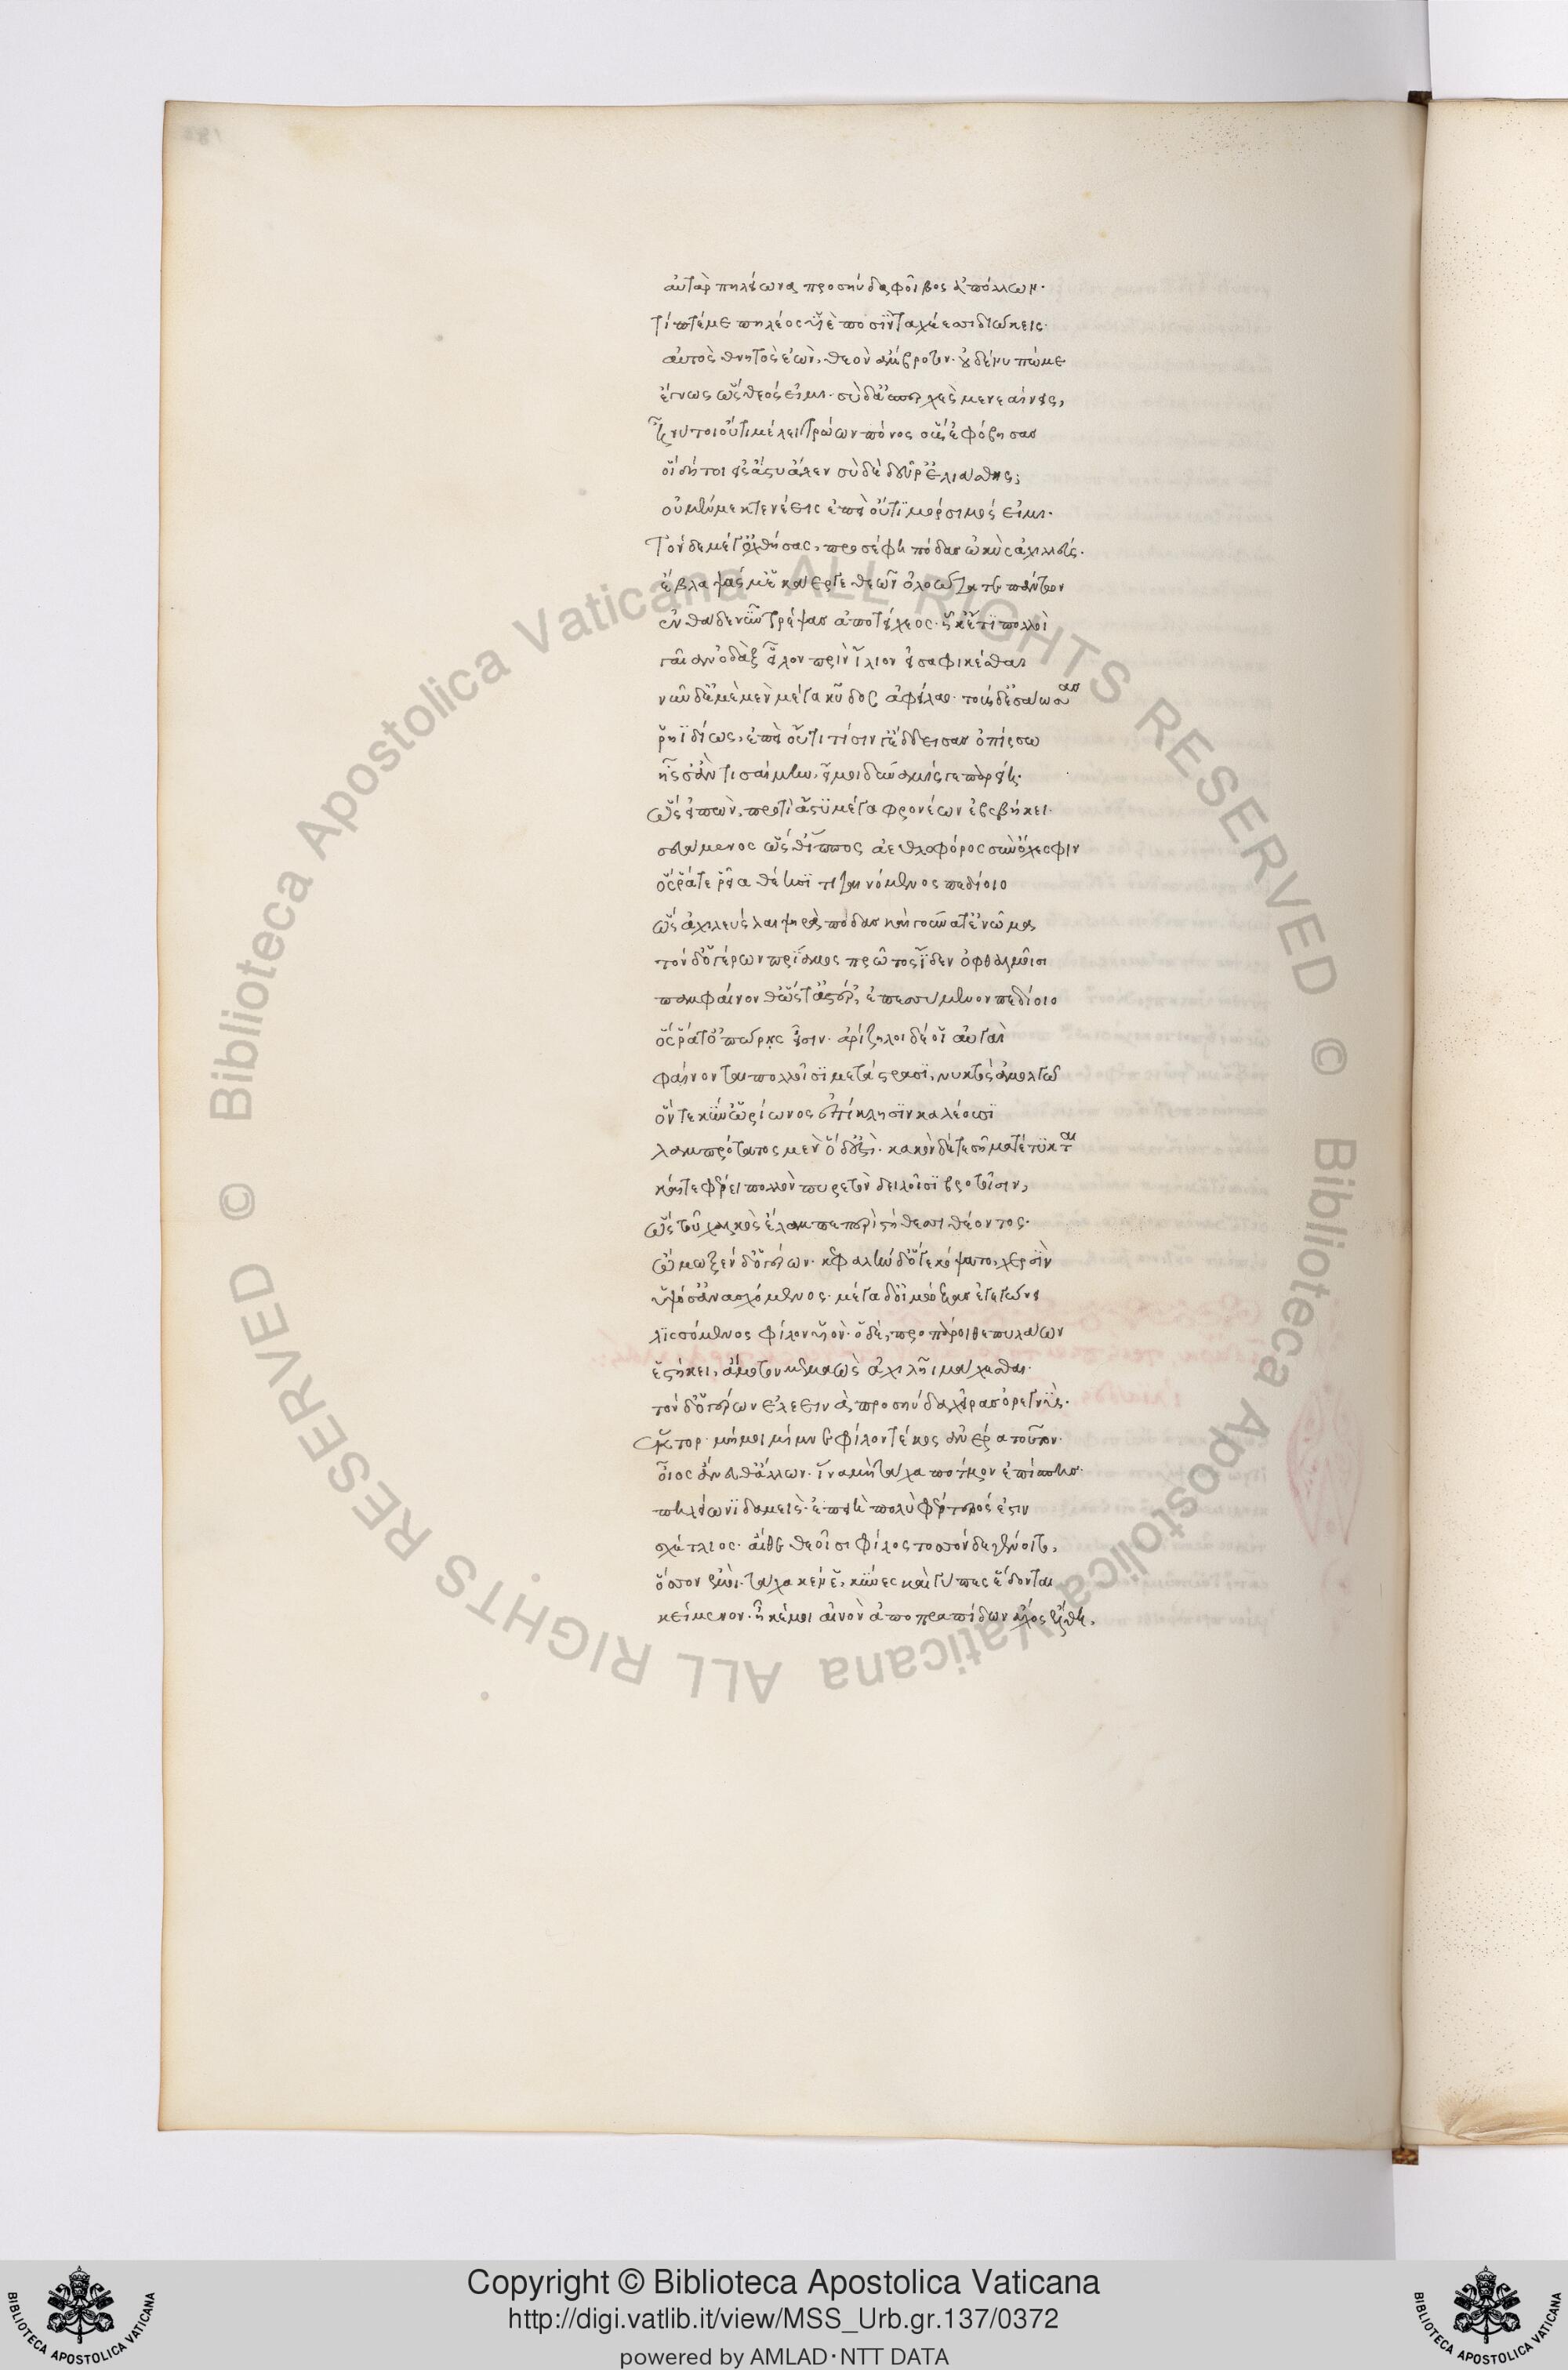 αὐτὰρ πηλείωνα προσηύδα φοῖβος ἀπόλλων·
τίπτέ με πηλέος υἱὲ ποσὶν ταχέεσσι διώκεις·
αὐτὸς θνητὸς ἐὼν, θεὸν ἄμβροτον· οὐδέ νυ πώ με
ἔγνως ὡς θεός εἰμι· σὺ δ' ἀσπερχὲς μενεαίνεις,
ἦ νύ τοι οὔτι μέλει τρώων πόνος οὓς ἐφόβησας
οἳ δή τοι εἰς ἄστυ ἄλεν σὺ δὲ δεῦρ' ἐλιάσθης;
οὐ μήν με κτενέεις ἐπεὶ οὔτι μόρσιμός εἰμι·
Τὸν δὲ μέγ' ὀχθήσας, προσέφη πόδας ὠκὺς ἀχιλλεύς·
ἔβλαψάς μ' ἑκάεργε θεῶν ὀλοώτατε πάντων
ἐνθάδε νῦν τρέψας ἀπὸ τείχεος· ἦ κ' ἔτι πολλοὶ
γαῖαν ὀδὰξ εἷλον πρὶν ἴλιον εἰσαφικέσθαι
νῦν δ' ἐμὲ μὲν μέγα κῦδος ἀφείλεο· τοὺς δ' ἐσάωσας
ῥηϊδίως, ἐπεὶ οὔτι τίσιν γ' ἔδδεισας ὀπίσσω
ἦ σ' ἂν τισαίμην, εἴ μοι δύναμίς γε παρείη·
ὣς εἰπὼν, προτὶ ἄστυ μέγα φρονέων ἐβεβήκει·
σευάμενος ὥς θ' ἵππος ἀεθλοφόρος σὺν ὄχεσφιν
ὅς ῥά τε ῥεῖα θέησι τιταινόμενος πεδίοιο
ὣς ἀχιλεὺς λαιψηρὰ πόδας καὶ γούνατ' ἐνώμα
τὸν δ' ὁ γέρων πρίαμος πρῶτος ἴδεν ὀφθαλμοῖσι
παμφαίνονθ' ὥς τ' ἀστέρ' ἐπεσσύμενον πεδίοιο
ὅς ῥά τ' ὀπώρης εἶσιν· ἀρίζηλοι δέ οἱ αὐγαὶ
φαίνονται πολλοῖσι μετ' ἀστράσι, νυκτὸς ἀμολγῶ
ὅν τε κύν' ὠρίωνος ἐπίκλησιν καλέουσι
λαμπρότατος μὲν ὅ δ' ἐστὶ· κακὸν δέ τε σῆμα τέτυκται
καί τε φέρει πολλὸν πυρετὸν δειλοῖσι βροτοῖσιν,
ὣς τοῦ χαλκὸς ἔλαμπε περὶ στήθεσσι θέοντος·
ᾤμωξεν δ' ὁ γέρων· κεφαλὴν δ' ὅ γε κόψατο, χερσὶν
ὑψόσ' ἀνασχόμενος· μέγα δ' οἰμώξας ἐγεγώνει
λισσόμενος φίλον υἱόν· ὃ δὲ, προπάροιθε πυλάων
ἑστήκει, ἄμοτον μεμαὼς ἀχιλῆϊ μάχεσθαι·
τὸν δ' ὁ γέρων ἐλεεινὰ προσηύδα χεῖρας ὀρεγνύς·
ἕκτορ· μή μοι μίμνε φίλον τέκος ἀνέρα τοῦτον·
οἶος ἄνευθ' ἄλλων· ἵνα μὴ τάχα πότμον ἐπίσπης·
πηλείωνι δαμείς· ἐπειὴ πολὺ φέρτερός ἐστιν
σχέτλιος· αἴθε θεοῖσι φίλος τοσσόνδε γένοιτο,
ὅσσον ἐμοὶ· τάχα κέν ἑ, κύνες καὶ γῦπες ἔδονται
κείμενον· ἦ κέ μοι αἰνὸν ἀπὸ πραπίδων ἄχος ἔλθη,
Copyright © Biblioteca Apostolica Vaticana
http://digi.vatlib.it/view/MSS_Urb.gr.137/0372
powered by AMLAD·NTT DATA